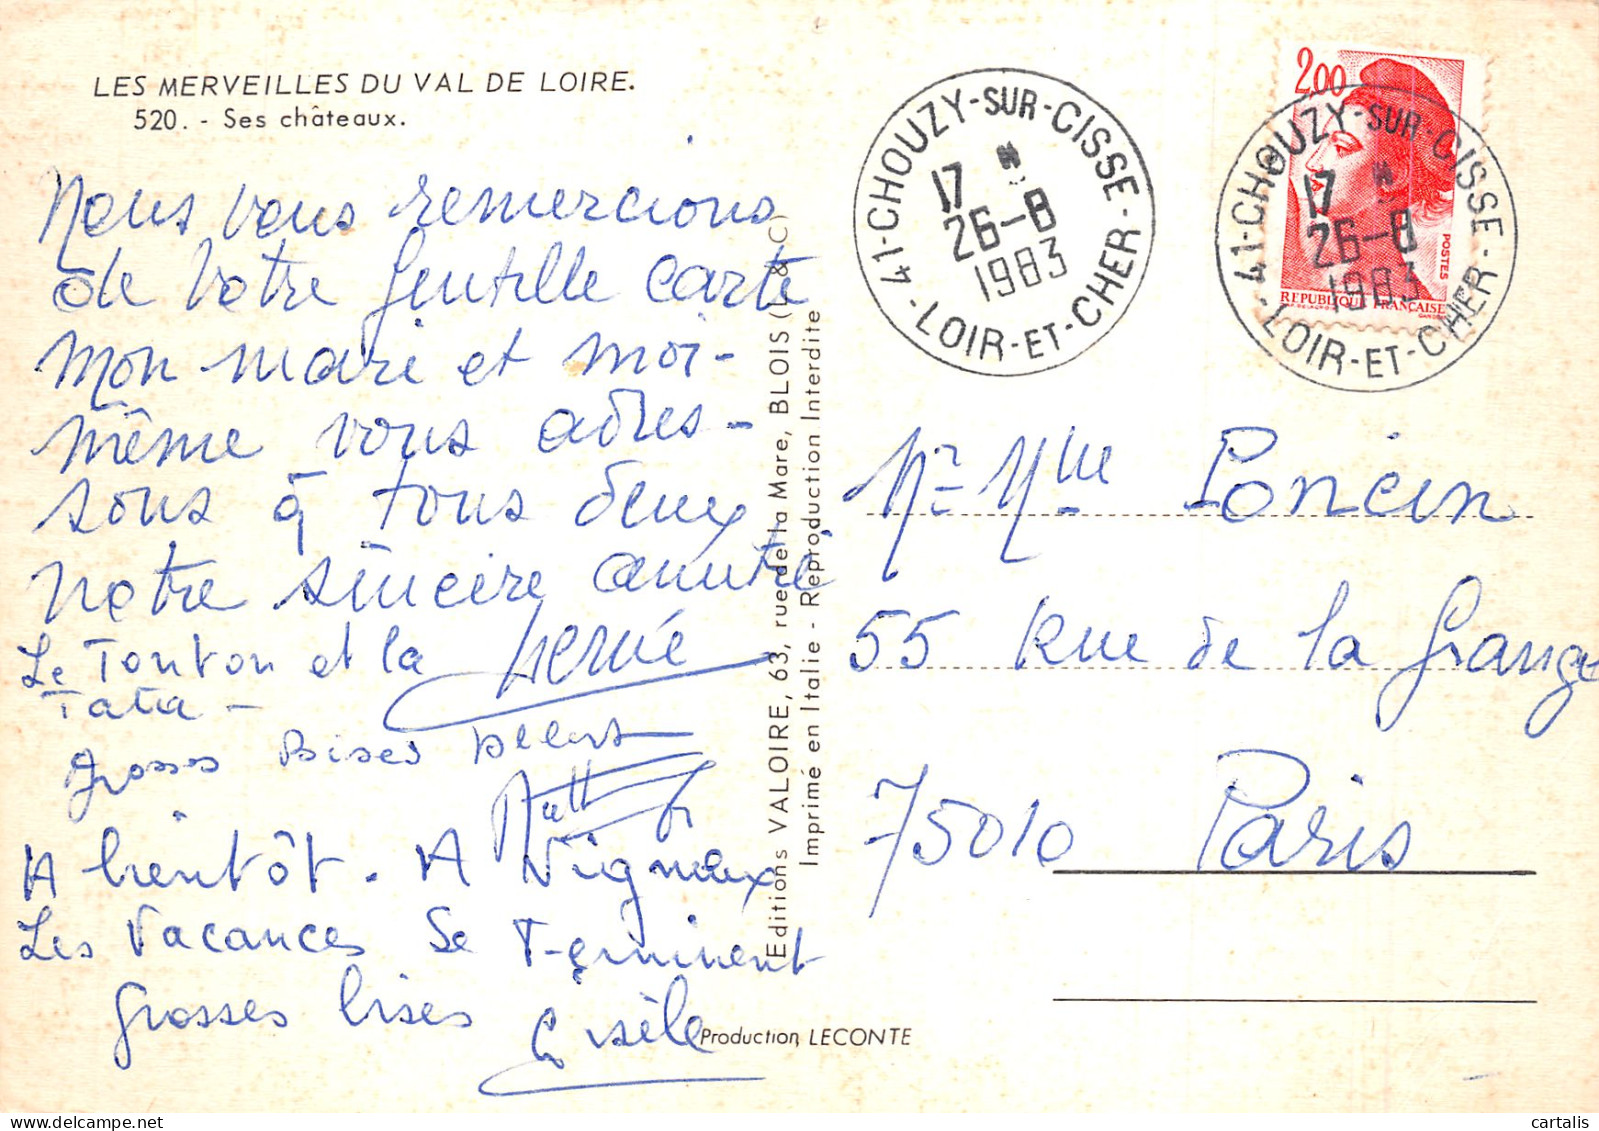 LES MERVEILLES DU VAL DE LOIRE.
520. - Ses châteaux.
Nous vous remercions
de votre gentille carte
mon mari et moi-
même vous adres-
sons à tous deux
notre sincère amitié
Le Tonton et la
Tata -
Hervé
Grosses Bises
A bientôt. A
Les Vacances Se Terminent
grosses bises
Gisèle
Editions VALOIRE, 63, rue de la Mare, BLOIS (L & C)
Imprimé en Italie - Reproduction Interdite
Production LECONTE
41-CHOUZY-SUR-CISSE-
17 *
26-8
1983
-LOIR-ET-CHER-
2,00
POSTES
REPUBLIQUE FRANÇAISE
GANDON
41-CHOUZY-SUR-CISSE-
17 *
26-8
1983
-LOIR-ET-CHER-
Mr Mme Poncin
55 Rue de la Grange
75010 Paris
cartalis